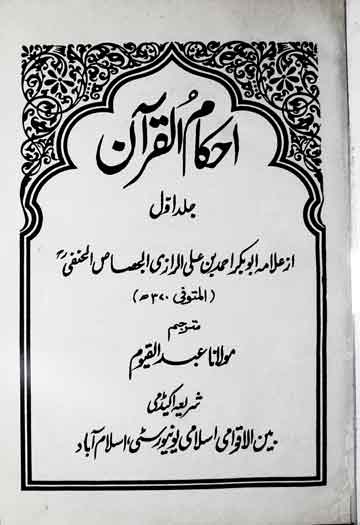 احکام القرآن
جلد اوّل
از علامہ ابوبکر احمد بن علی الرازی الجصاص الحنفیؒ
(المتوفی ۳۷۰ھ)
مترجم
مولانا عبد القیوم
شریعہ اکیڈمی
بین الاقوامی اسلامی یونیورسٹی، اسلام آباد